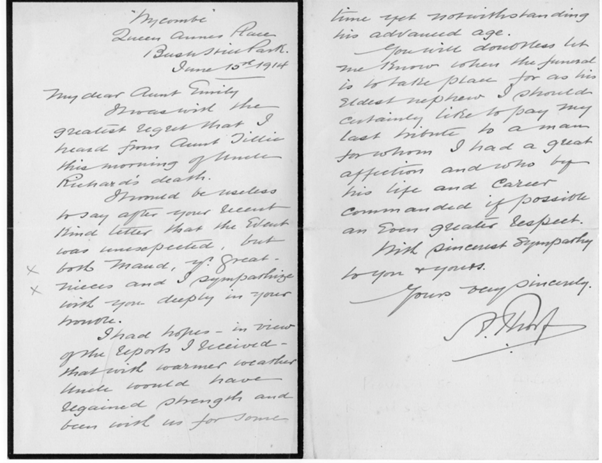 'Wycombe'
Queen Annes Place
Bush Hill Park.
June 15th 1914
My dear Aunt Emily
It was with the
greatest regret that I
heard from Aunt Tillie
this morning of Uncle
Richard's death.
It would be useless
to say after your recent
kind letter that the event
was unexpected, but
x both Maud, yr great-
x nieces and I sympathize
with you deeply in your
trouble.
I had hopes - in view
of the reports I received -
that with warmer weather
Uncle would have
regained strength and
been with us for some
time yet notwithstanding
his advanced age.
You will doubtless let
me know when the funeral
is to take place for as his
Eldest nephew I should
certainly like to pay my
last tribute to a man
for whom I had a great
affection and who by
his life and career
commanded if possible
an Even greater respect.
With sincerest sympathy
to you & yours.
Yours very sincerely.